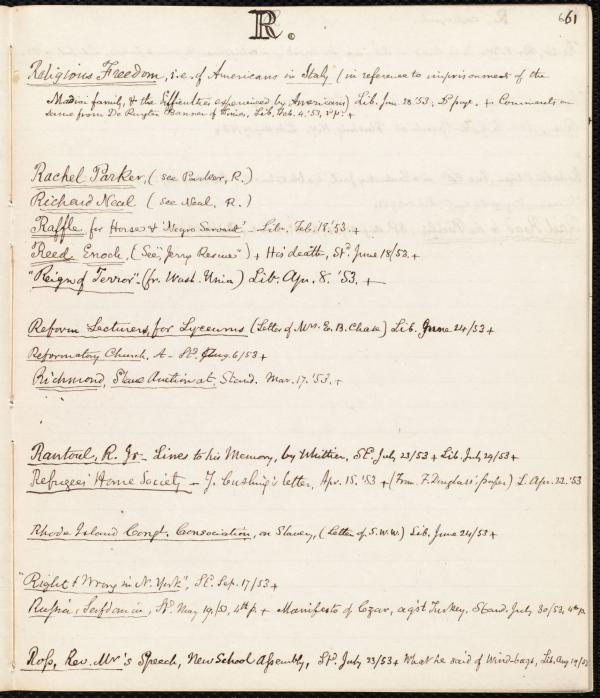 R.
61
Religious Freedom, i.e. of Americans in Italy (in reference to imprisonment of the
Madiai family, & the difficulties experienced by Americans) Lib. Jan. 28 '53; + Comments on
same from De Ruyter Banner of Times, Lib. Feb. 4. '53, +
Rachel Parker, (see Parker, R.)
Richard Neal (see Neal, R.)
Raffle for Horse & "Negro Servant" - Lib. Feb. 18. '53. +
Reed, Enoch, (See "Jerry Rescue") + His death, Sd. June 18/53. +
"Reign of Terror" - (fr. Wash. Union) Lib. Apr. 8. '53. +
Reform Lecturers, for Lyceums (Letter of Mrs. E. B. Chase) Lib. June 24/53 +
Reformatory Church. A - St. Aug. 6/53 +
Richmond, Slave Auction at, Stand. Mar. 17. '53. +
Rantoul, R. Jr - Lines to his Memory, by Whittier, Sd. July 23/53 + Lib. July 29/53 +
Refugees' Home Society - J. Cushing's letter, Apr. 15. '53 + (From F. Douglass' paper) L. Apr. 22. '53
Rhode Island Congl. Consociation, on Slavery, (Letter of S. W. W.) Lib. June 24/53 +
"Right & Wrong in N. York", St. Sep. 17/53 +
Russia, Serfdom in, St. May 19/53, 4th p. + Manifesto of Czar, agst Turkey, Stand. July 30/53, 4th p.
Ross, Rev. Mr's Speech, New School Assembly, Sd. July 23/53 + What he said of Wind-bags, Lib. Aug 19/53